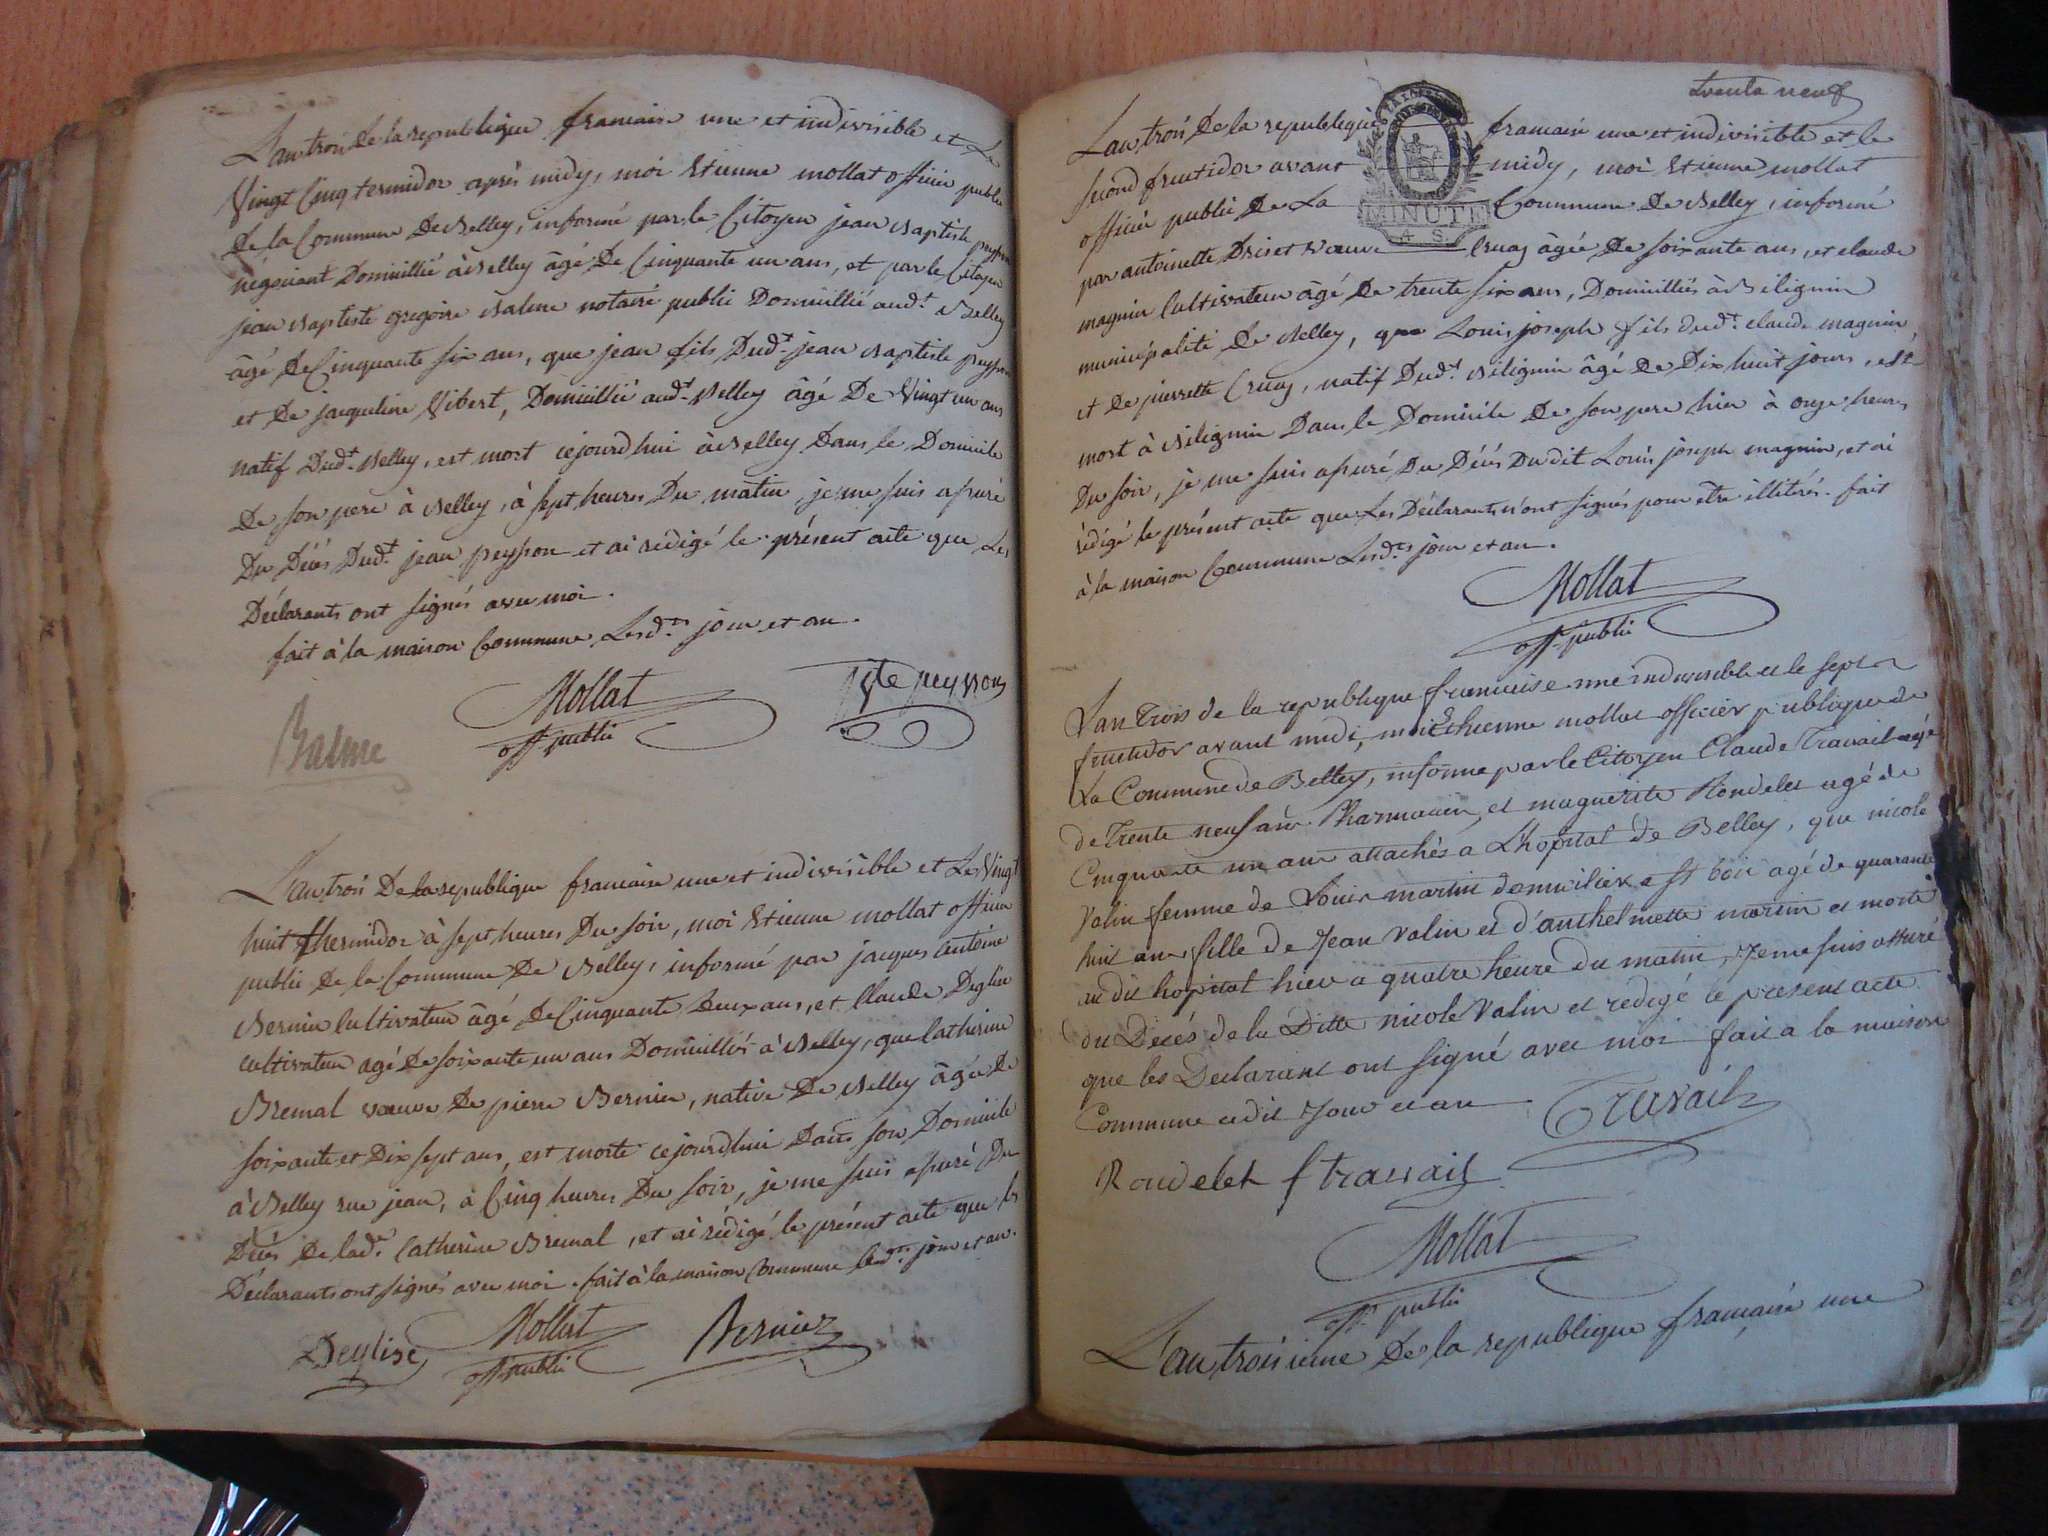 L'an trois de la republique francaise une et indivisible et le
Vingt Cinq termidor après midy, moi Etienne mollat officier public
De la Commune De Belley, informé par le Citoyen jean Baptiste peysson
négociant Domicillié à Belley âgé De Cinquante un ans, et par le Citoyen
jean Baptiste gregoire Balme notaire public Domicillié aud.t Belley
âgé De Cinquante six ans, que jean fils Dud.t jean Baptiste peysson
et De jacqueline Vibert, Domicillié aud.t Belley âgé De Vingt un ans
natif Dud.t Belley, est mort cejourdhui à Belley Dans le Domicile
De son pere à Belley, à sept heures Du matin, je me suis assuré
Du Décés Dud.t jean peysson et ai redigé le présent acte que Les
Déclarants ont signés avec moi.
fait à la maison Commune Lesd.ts jour et an.
Mollat
off. public
Bte peysson
Balme
L'an trois De la republique francaise une et indivisible et Le Vingt
huit thermidor à sept heures Du soir, moi Etienne mollat officier
public De la Commune De Belley, informé par jacques antoine
Bernier Cultivateur âgé De Cinquante Deux ans, et Claude Deglise
cultivateur agé De soixante un ans Domicilliés à Belley, que Catherine
Bremal veuve De pierre Bernier, native De Belley âgée De
soixante et Dix sept ans, est morte cejourdhui Dans son Domicile
à Belley rue jean, à Cinq heures Du soir, je me suis assuré Du
Décés De lad.e Catherine Bremal, et ai rédigé le présent acte que les
Déclarants ont signés avec moi. fait à la maison Commune lesd.ts jour et an.
Deglise
Mollat
off. public
Bernier
trente neuf
L'an trois De la republique francaise une et indivisible et le
second fructidor avant midy, moi Etienne mollat
officier public De La Commune De Belley, informé
MINUTE
A. S.
par antoinette veuve Cruaz âgée De soixante ans, et claude
magnin Cultivateur âgé De trente six ans, Domicilliés à Bilignin
municipalité De Belley, que Louis joseph fils dud.t claude magnin
et De pierrette Cruaz, natif Dud.t Bilignin âgé De Dix huit jours, est
mort à Bilignin Dans le Domicile De son pere hier à onze heures
Du soir, je me suis assuré Du Décés Dudit Louis joseph magnin, et ai
rédigé le présent acte que Les Déclarants n'ont signés pour être illitérés. fait
à la maison Commune Lesd.ts jour et an.
Mollat
off. public
L'an Trois de la republique francaise une indivisible et le sept
fructidor avant midi, moi Ethienne mollat officier publique de
La Commune de Belley, informé par le Citoyen Claude Travail agé
de Trente neuf ans Pharmacien, et marguerite Rondelet agé de
Cinquante un ans attachés a L'hopital de Belley, que nicole
Valin femme de Louis martin domiciliex agé de quarante
huit ans fille de Jean Valin et d'anthelmette martin et morte
au dit hopital hier a quatre heure du matin, Je me suis assuré
du Decés de la Ditte nicole Valin et redegé le present acte
que les Declarant ont signé avec moi fait a la maison
Commune ledit Jour et an
Travail
Rondelet f travail
Mollat
off. public
L'an troisieme De la republique francaise une